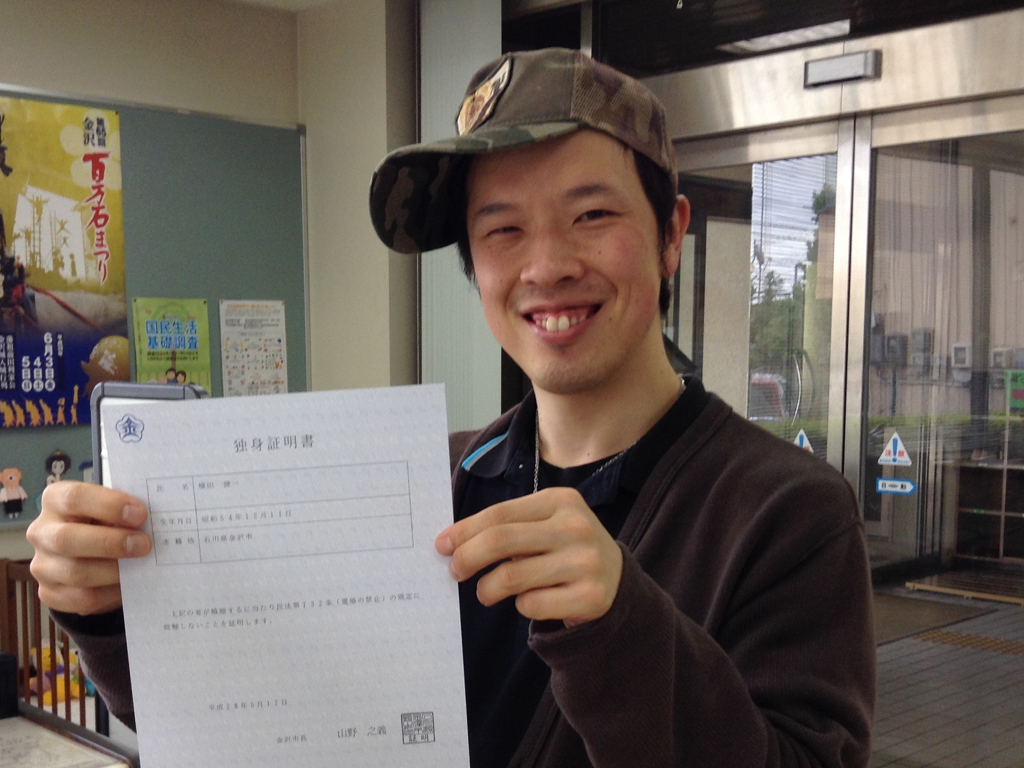 第65回
金沢
百万石まつり
6月3日金
4日土
5日日
国民生活
基礎調査
金
独身証明書
氏名
生年月日 昭和54年12月11日
本籍地 石川県金沢市
上記の者が婚姻するに当たり民法第732条(重婚の禁止)の規定に
抵触しないことを証明します。
平成28年5月17日
金沢市長 山野 之義
注意
自動